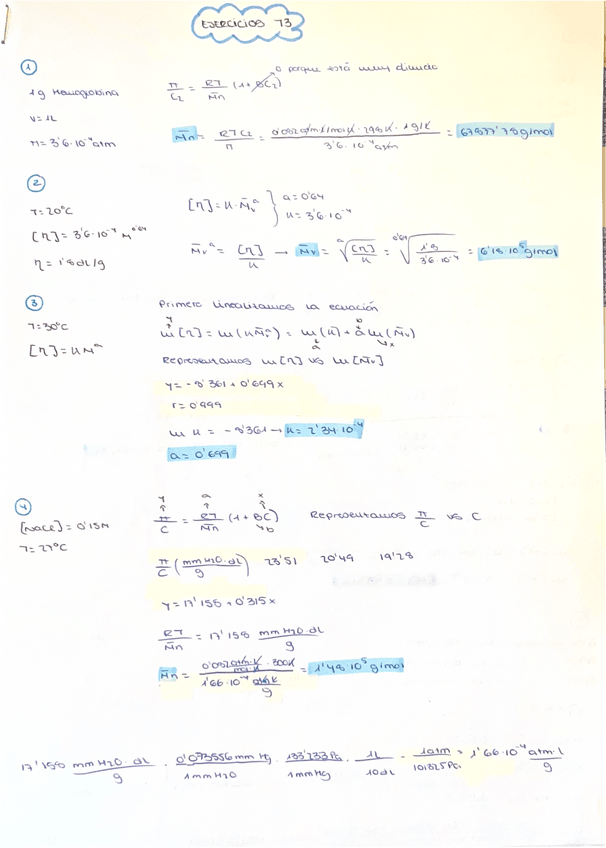 EJERCICIOS T3
1
1g Hemoglobina
V=1L
π=3'6·10⁻⁴atm
π/C₂ = RT/M̄n (1+BC₂) 0 porque está muy diluido
M̄n = RTC₂/π = 0'082atm·l/mol·K · 298K · 1g/l / 3'6·10⁻⁴atm = 67877'78g/mol
2
T=20°C
[η]=3'6·10⁻⁴ M^0'64
η=1'8dL/g
[η]=K·M̄v^a } a=0'64 K=3'6·10⁻⁴
M̄v^a = [η]/K → M̄v = ᵃ√([η]/K) = ⁰'⁶⁴√(1'8/3'6·10⁻⁴) = 6'18·10⁵g/mol
3
T=30°C
[η]=KM^a
Primero linealizamos la ecuación
y
ln[η]=ln(KM̄v^a)=ln(K)+a ln(M̄v)
a b x
Representamos ln[η] vs ln[M̄v]
y=-8'361+0'699x
r=0'999
ln K = -8'361→K=2'34·10⁻⁴
a=0'699
4
[NaCl]=0'15M
T=27°C
y a x
π/C = RT/M̄n (1+BC) Representamos π/C vs C
b
π/C (mmH2O·dL/g) 23'51 20'49 19'28
y=17'158+0'315x
RT/M̄n = 17'158 mmH2O·dL/g
M̄n = 0'082atm·l/mol·K · 300K / 1'66·10⁻⁴ atm·l/g = 1'48·10⁵g/mol
17'158 mmH2O·dL/g · 0'073556mmHg/1mmH2O · 133'233Pa/1mmHg · 1L/10dL · 1atm/101325Pa = 1'66·10⁻⁴ atm·l/g